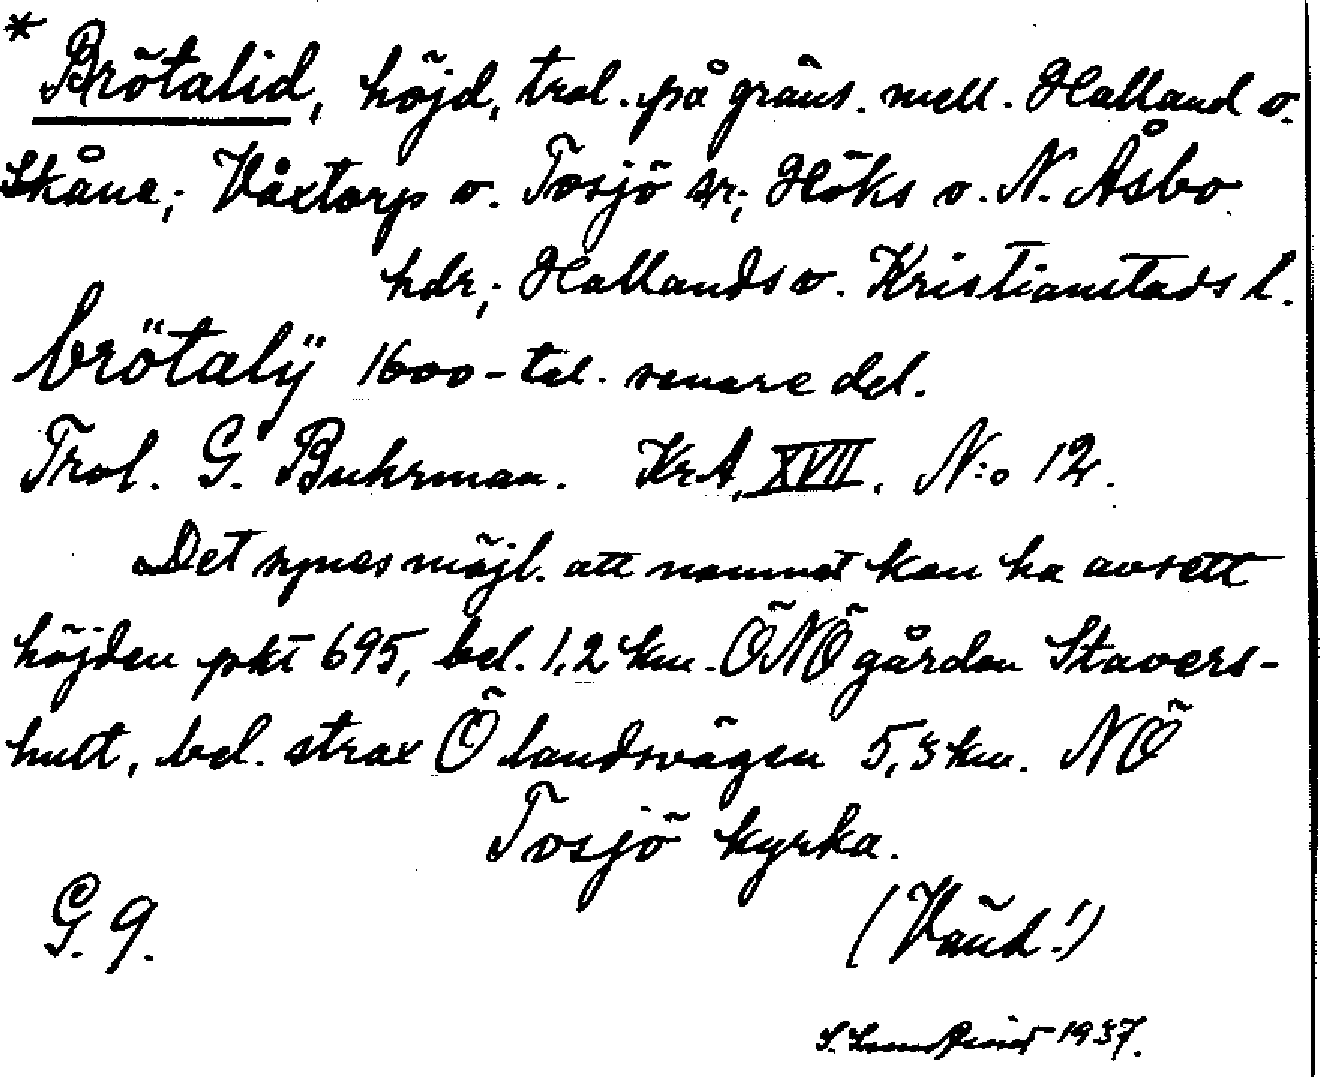 * Brötalid, höjd, trol. på gräns. mell. Halland o.
Skåne; Våxtorp o. Tosjö sr; Höks o. N. Åsbo
hdr; Hallands o. Kristianstads l.
brötalÿ 1600-tal. senare del.
Trol. G. Buhrman. KrA, XVII. N:o 12.
Det synes möjl. att namnet kan ha avsett
höjden pkt 695, bel. 1,2 km. ÖNÖ gården Stavers-
hult, bel. strax Ö landsvägen 5,3 km. NÖ
Tosjö kyrka.
G. 9. (Vänd!)
S. 1937.